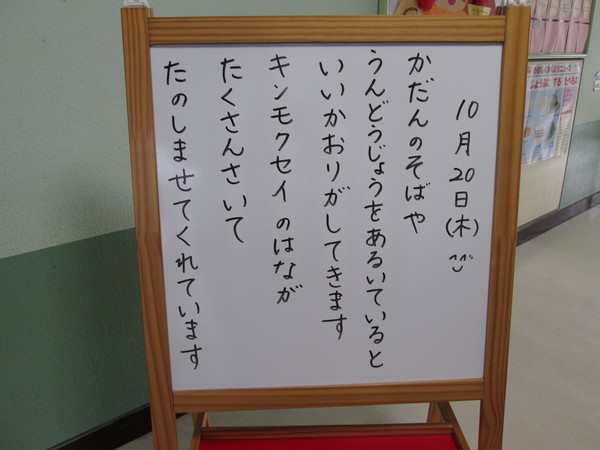 10月20日(木)
かだんのそばや
うんどうじょうをあるいていると
いいかおりがしてきます
キンモクセイのはなが
たくさんさいて
たのしませてくれています